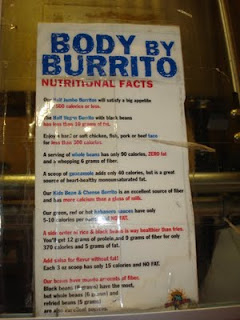 BODY BY
BURRITO
NUTRITIONAL FACTS
Our Half Jumbo Burritos will satisfy a big appetite
500 calories or less.
Our Half Vegro Burrito with black beans
has less than 10 grams of fat.
Enjoy a hard or soft chicken, fish, pork or beef taco
for less than 300 calories.
A serving of whole beans has only 90 calories, ZERO fat
and a whopping 6 grams of fiber.
A scoop of guacamole adds only 40 calories, but is a great
source of heart-healthy monounsaturated fat.
Our Kids Bean & Cheese Burrito is an excellent source of fiber
and has more calcium than a glass of milk.
Our green, red or hot habanero sauces have only
5-10 calories per NO FAT.
A side order of rice & black beans is way healthier than fries.
You'll get 12 grams of protein and 9 grams of fiber for only
370 calories and 5 grams of fat.
Add salsa for flavor without fat!
Each 3 oz scoop has only 15 calories and NO FAT.
Our beans have massive amounts of fiber.
Black beans grams) have the most,
but whole beans (6 grams) and
refried beans (5 grams)
are also excellent sources.